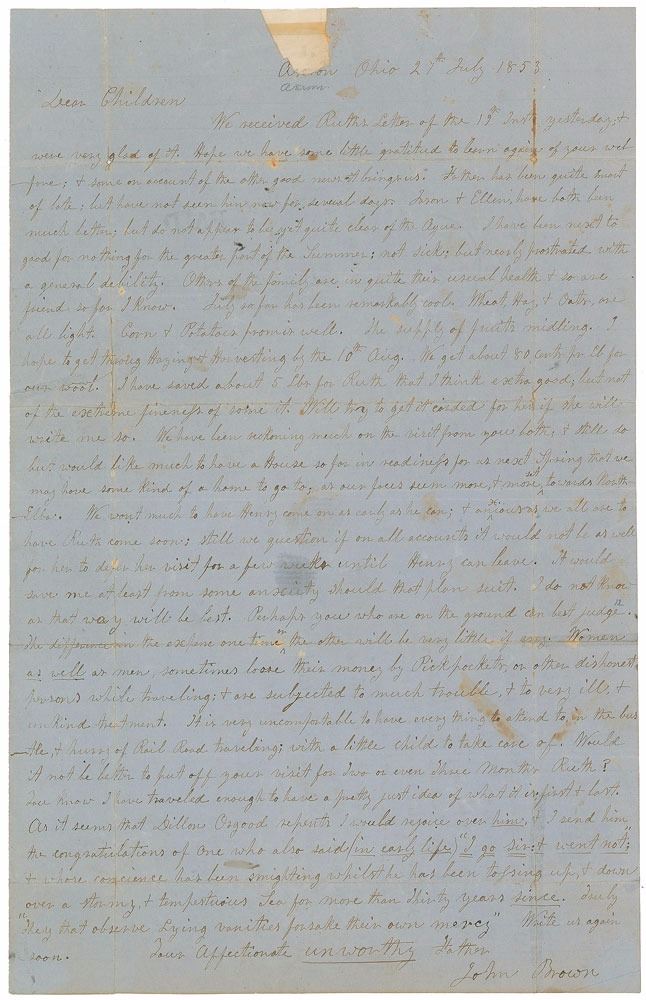 Akron Ohio 27th July 1853
Akron
Dear Children
We received Ruths Letter of the 19th Inst yesterday; &
were very glad of it. Hope we have some little gratitude to learn again of your wel
fare; & some on account of the other good news it brings us. Father has been quite smart
of late; but have not seen him now for several days. Jason & Ellen, have both been
much better; but do not appear to be yet quite clear of the Ague. I have been next to
good for nothing for the greater part of the Summer; not sick; but nearly prostrated with
a general debility. Others of the family are in quite their usual health & so are
friend so far I know. July so far has been remarkably cool. Wheat, Hay, & Oats, are
all light. Corn & Potatoes promis well. The supply of fruits midling. I
hope to get throug Haying & Harvesting by the 10th Aug. We get about 80 cents pr Lb for
our wool. I have saved about 5 Lbs for Ruth that I think extra good; but not
of the extreme fineness of some it. Will try to get it carded for her if she will
write me so. We have been reckoning much on the visit from you both; & still do
but would like much to have a House so far in readiness for us next Spring that we
may have some kind of a home to go to; as our faces seem more, & more, set towards North
Elba. We want much to have Henry come on as early as he can; & anxious as we all are to
have Ruth come soon; still we question if on all accounts it would not be as well
for her to defer her visit for a few weeks until Henry can leave. It would
save me at least from some anxiety should that plan suit. I do not know
as that way will be best. Perhaps you who are on the ground can best judge.
The difference in the expense one time or the other will be very little if any. Women
as well as men, sometimes loose their money by Pickpockets, or other dishonest
persons while traveling; & are subjected to much trouble, & to very ill, &
unkind treatment. It is very uncomfortable to have every thing to attend to, in the bus
tle, & hurry of Rail Road traveling; with a little child to take care of. Would
it not be better to put off your visit for Two or even Three Months Ruth?
You know I have traveled enough to have a pretty just idea of what it is, first & last.
As it seems that Dillon Osgood repents I would rejoice over him; & I send him
the congratulations of one who also said (in early life) "I go sir; & went not";
& whose concience has been smighting whilst he has been tossing up, & down
over a stormy, & tempestuous Sea for more than Thirty years since. Truly
"They that observe Lying vanities forsake their own mercy" Write us again
soon. Your Affectionate unworthy Father
John Brown